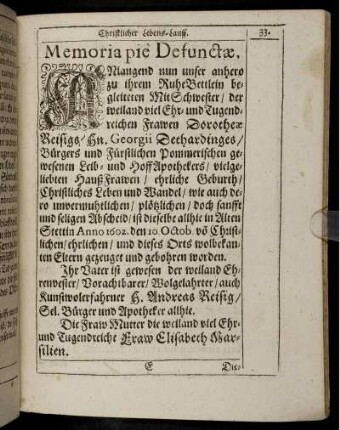 Christlicher Lebens-Lauff. 33.
Memoria piè Defunctæ,
ANlangend nun unser anhero
zu ihrem RuheBettlein be-
gleiteten MitSchwester / der
weiland viel Ehr- und Tugend-
reichen Frawen Dorotheæ
Reisigs / Hn. Georgii Dethardinges /
Bürgers und Fürstlichen Pommerischen ge-
wesenen Leib- und HoffApothekers / vielge-
liebten HaußFrawen / ehrliche Geburth /
Christliches Leben und Wandel / wie auch de-
ro unvermuhtlichen / plötzlichen / doch sanfft
und seligen Abscheid / ist dieselbe allhie in Alten
Stettin Anno 1602. den 10. Octob. võ Christ-
lichen / ehrlichen / und dieses Orts wolbekan-
ten Eltern gezeuget und gebohren worden.
Ihr Vater ist gewesen der weiland Eh-
renvester / Vorachtbarer / Wolgelahrter / auch
Kunstwolerfahrner H. Andreas Reisig /
Sel. Bürger und Apotheker allhie.
Die Fraw Mutter die weiland viel Ehr-
und Tugendreiche Fraw Elisabeth Mar-
silien.
E Die-